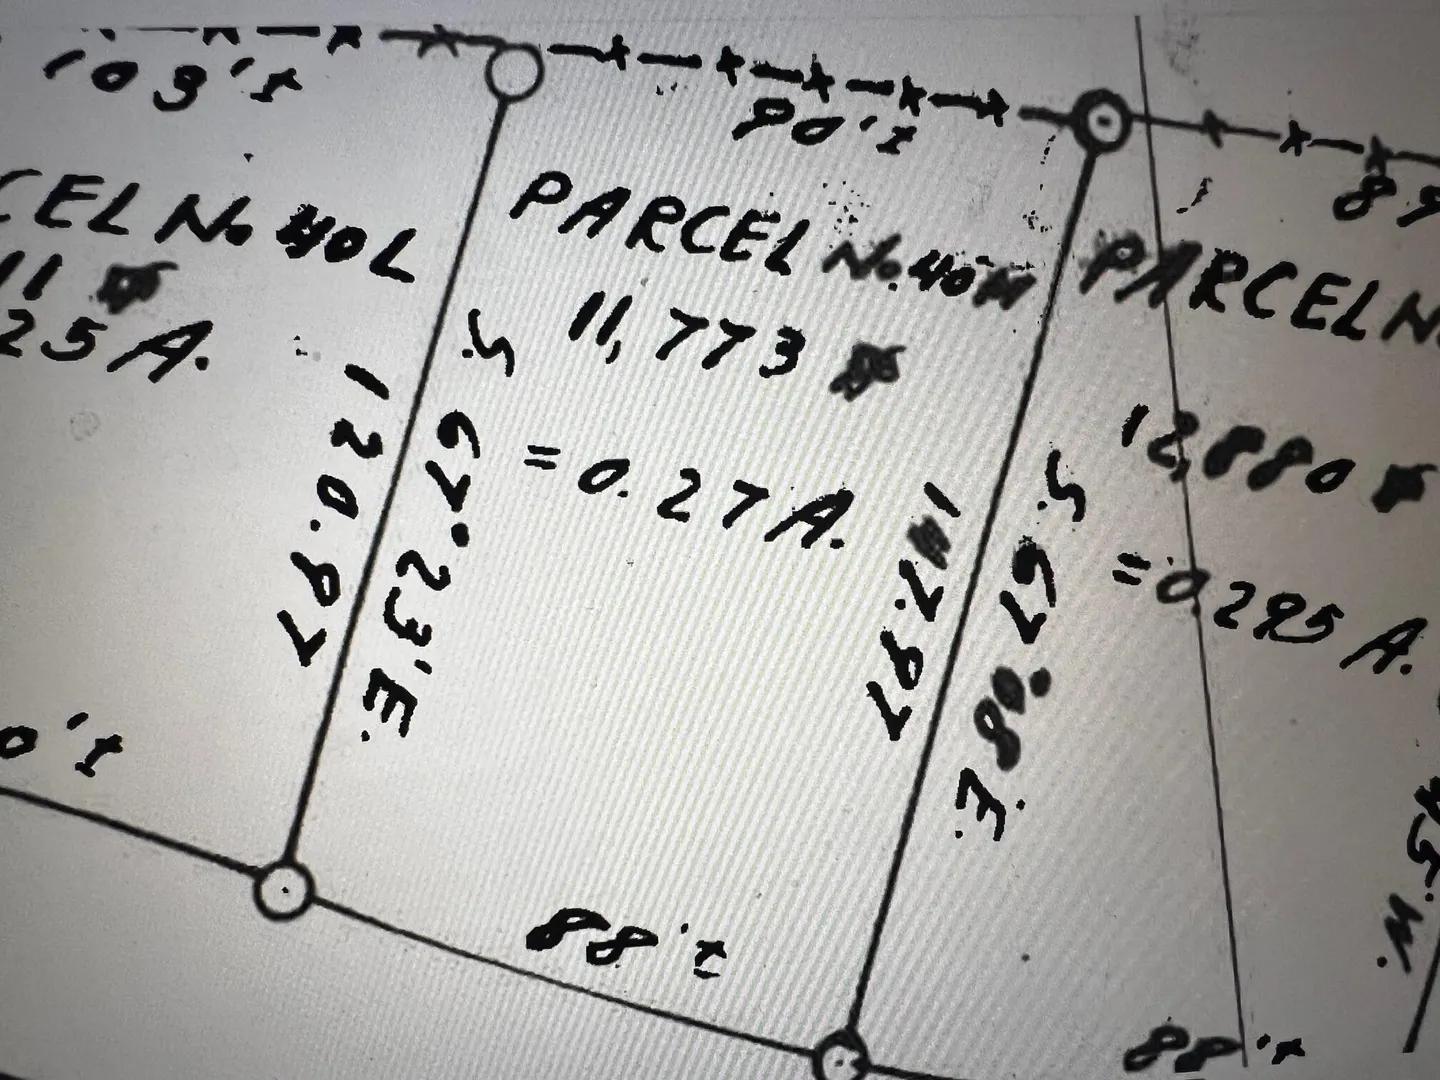 103'±
90'±
89
CEL No. 40L
11
25 A.
PARCEL No. 40M
11,773
= 0.27 A.
PARCEL N
12,880
= 0.295 A.
120.97
S. 67° 23' E.
S. 67° 80' E.
0'±
88'±
88'±